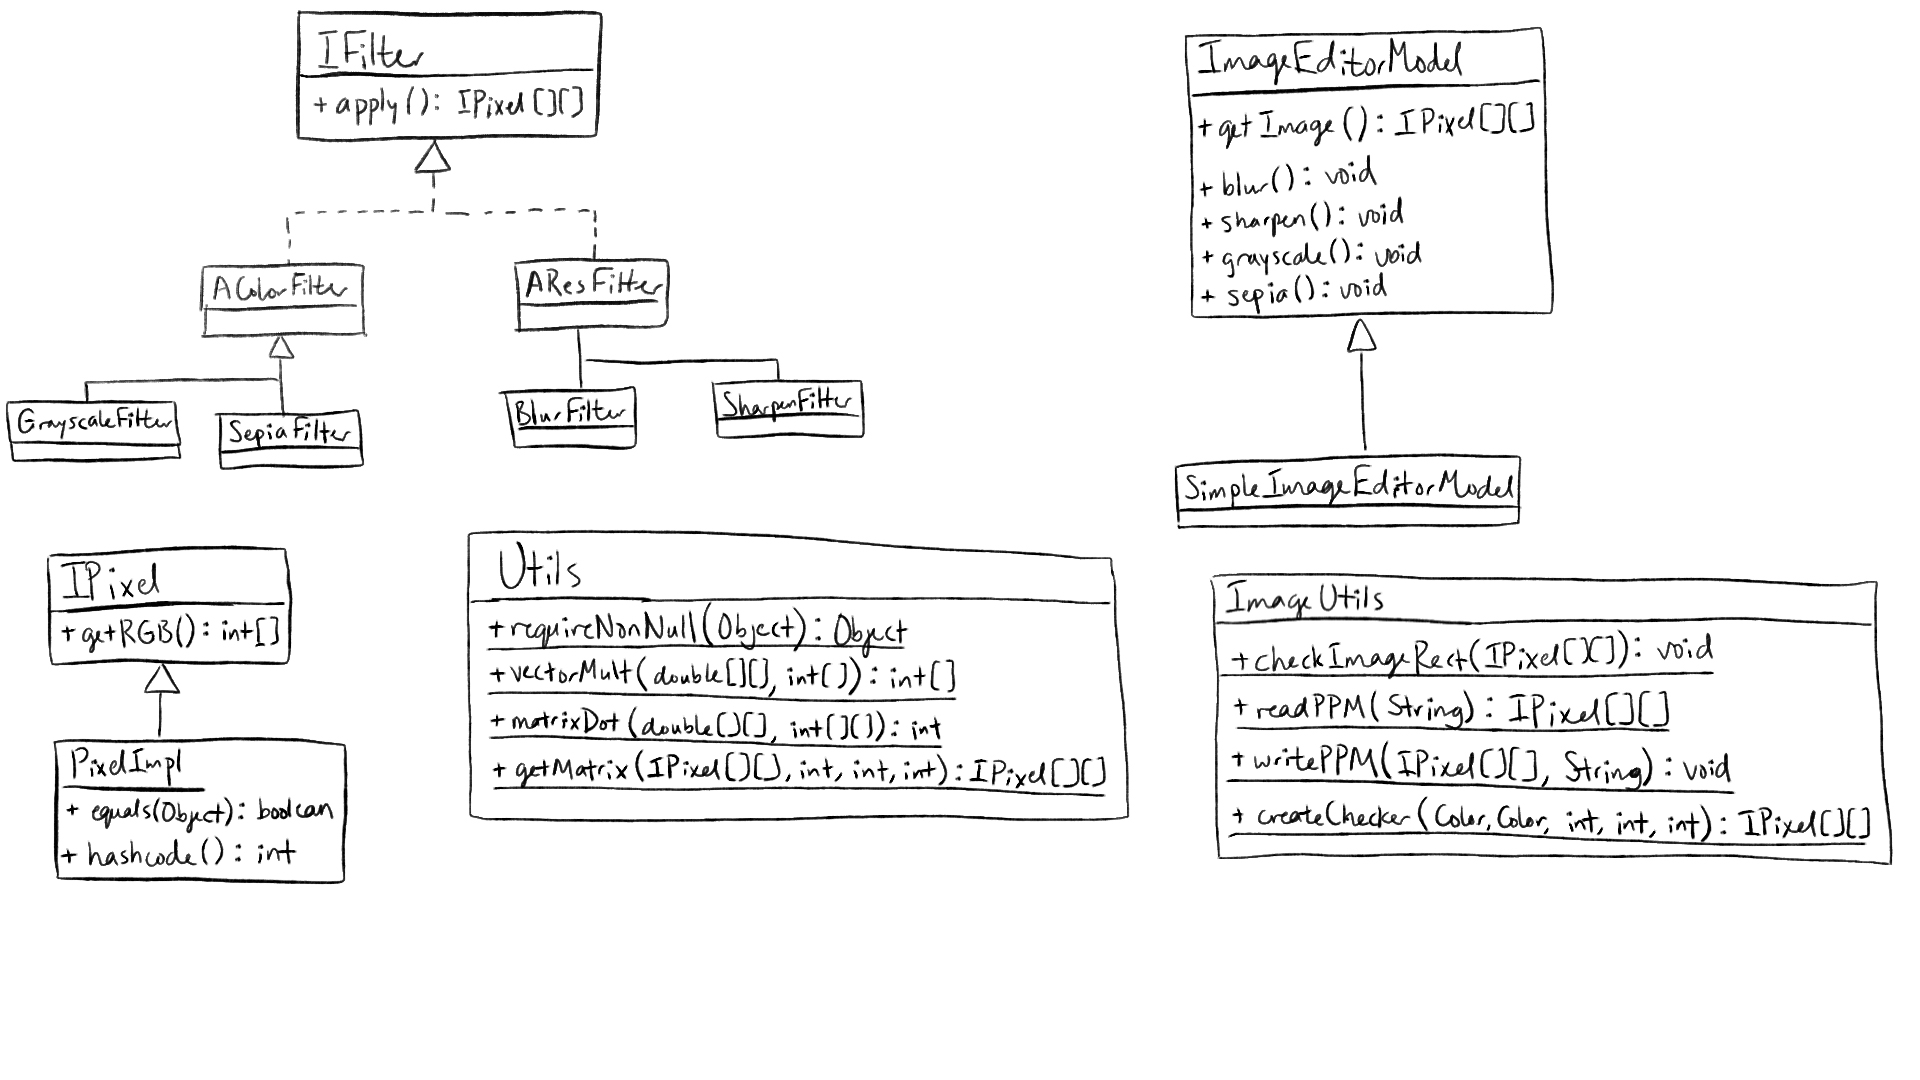 IFilter
+ apply(): IPixel[][]
AColorFilter
AResFilter
GrayscaleFilter
SepiaFilter
BlurFilter
SharpenFilter
ImageEditorModel
+ getImage(): IPixel[][]
+ blur(): void
+ sharpen(): void
+ grayscale(): void
+ sepia(): void
SimpleImageEditorModel
IPixel
+ getRGB(): int[]
PixelImpl
+ equals(Object): boolean
+ hashcode(): int
Utils
+ requireNonNull(Object): Object
+ vectorMult(double[][], int[]): int[]
+ matrixDot(double[][], int[][]): int
+ getMatrix(IPixel[][], int, int, int): IPixel[][]
ImageUtils
+ checkImageRect(IPixel[][]): void
+ readPPM(String): IPixel[][]
+ writePPM(IPixel[][], String): void
+ createChecker(Color, Color, int, int, int): IPixel[][]